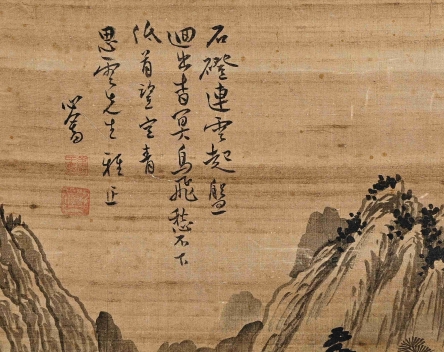 石磴連雲起盤
迴出青冥鳥飛愁不下
低首望空青
思雲先生雅正
心畬